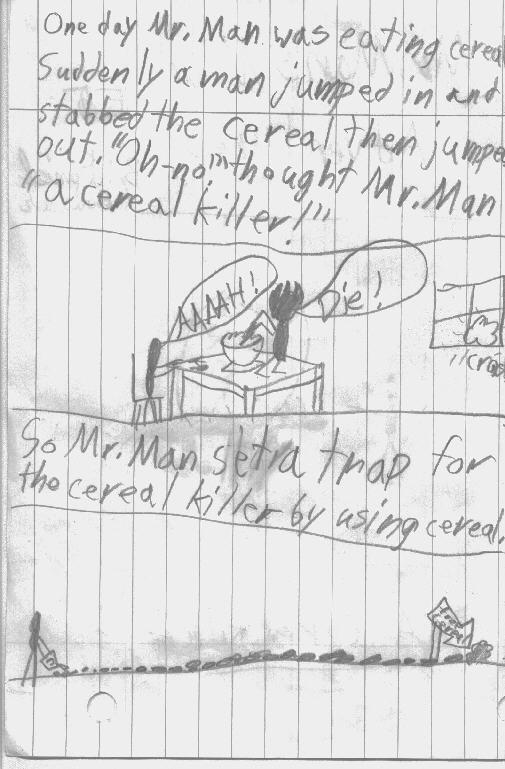 One day Mr. Man was eating cereal
Suddenly a man jumped in and
stabbed the cereal then jumped
out. "Oh-no" thought Mr. Man
"a cereal killer!"
AAAAH!
Die!
So Mr. Man set a trap for
the cereal killer by using cereal.
Free
cereal